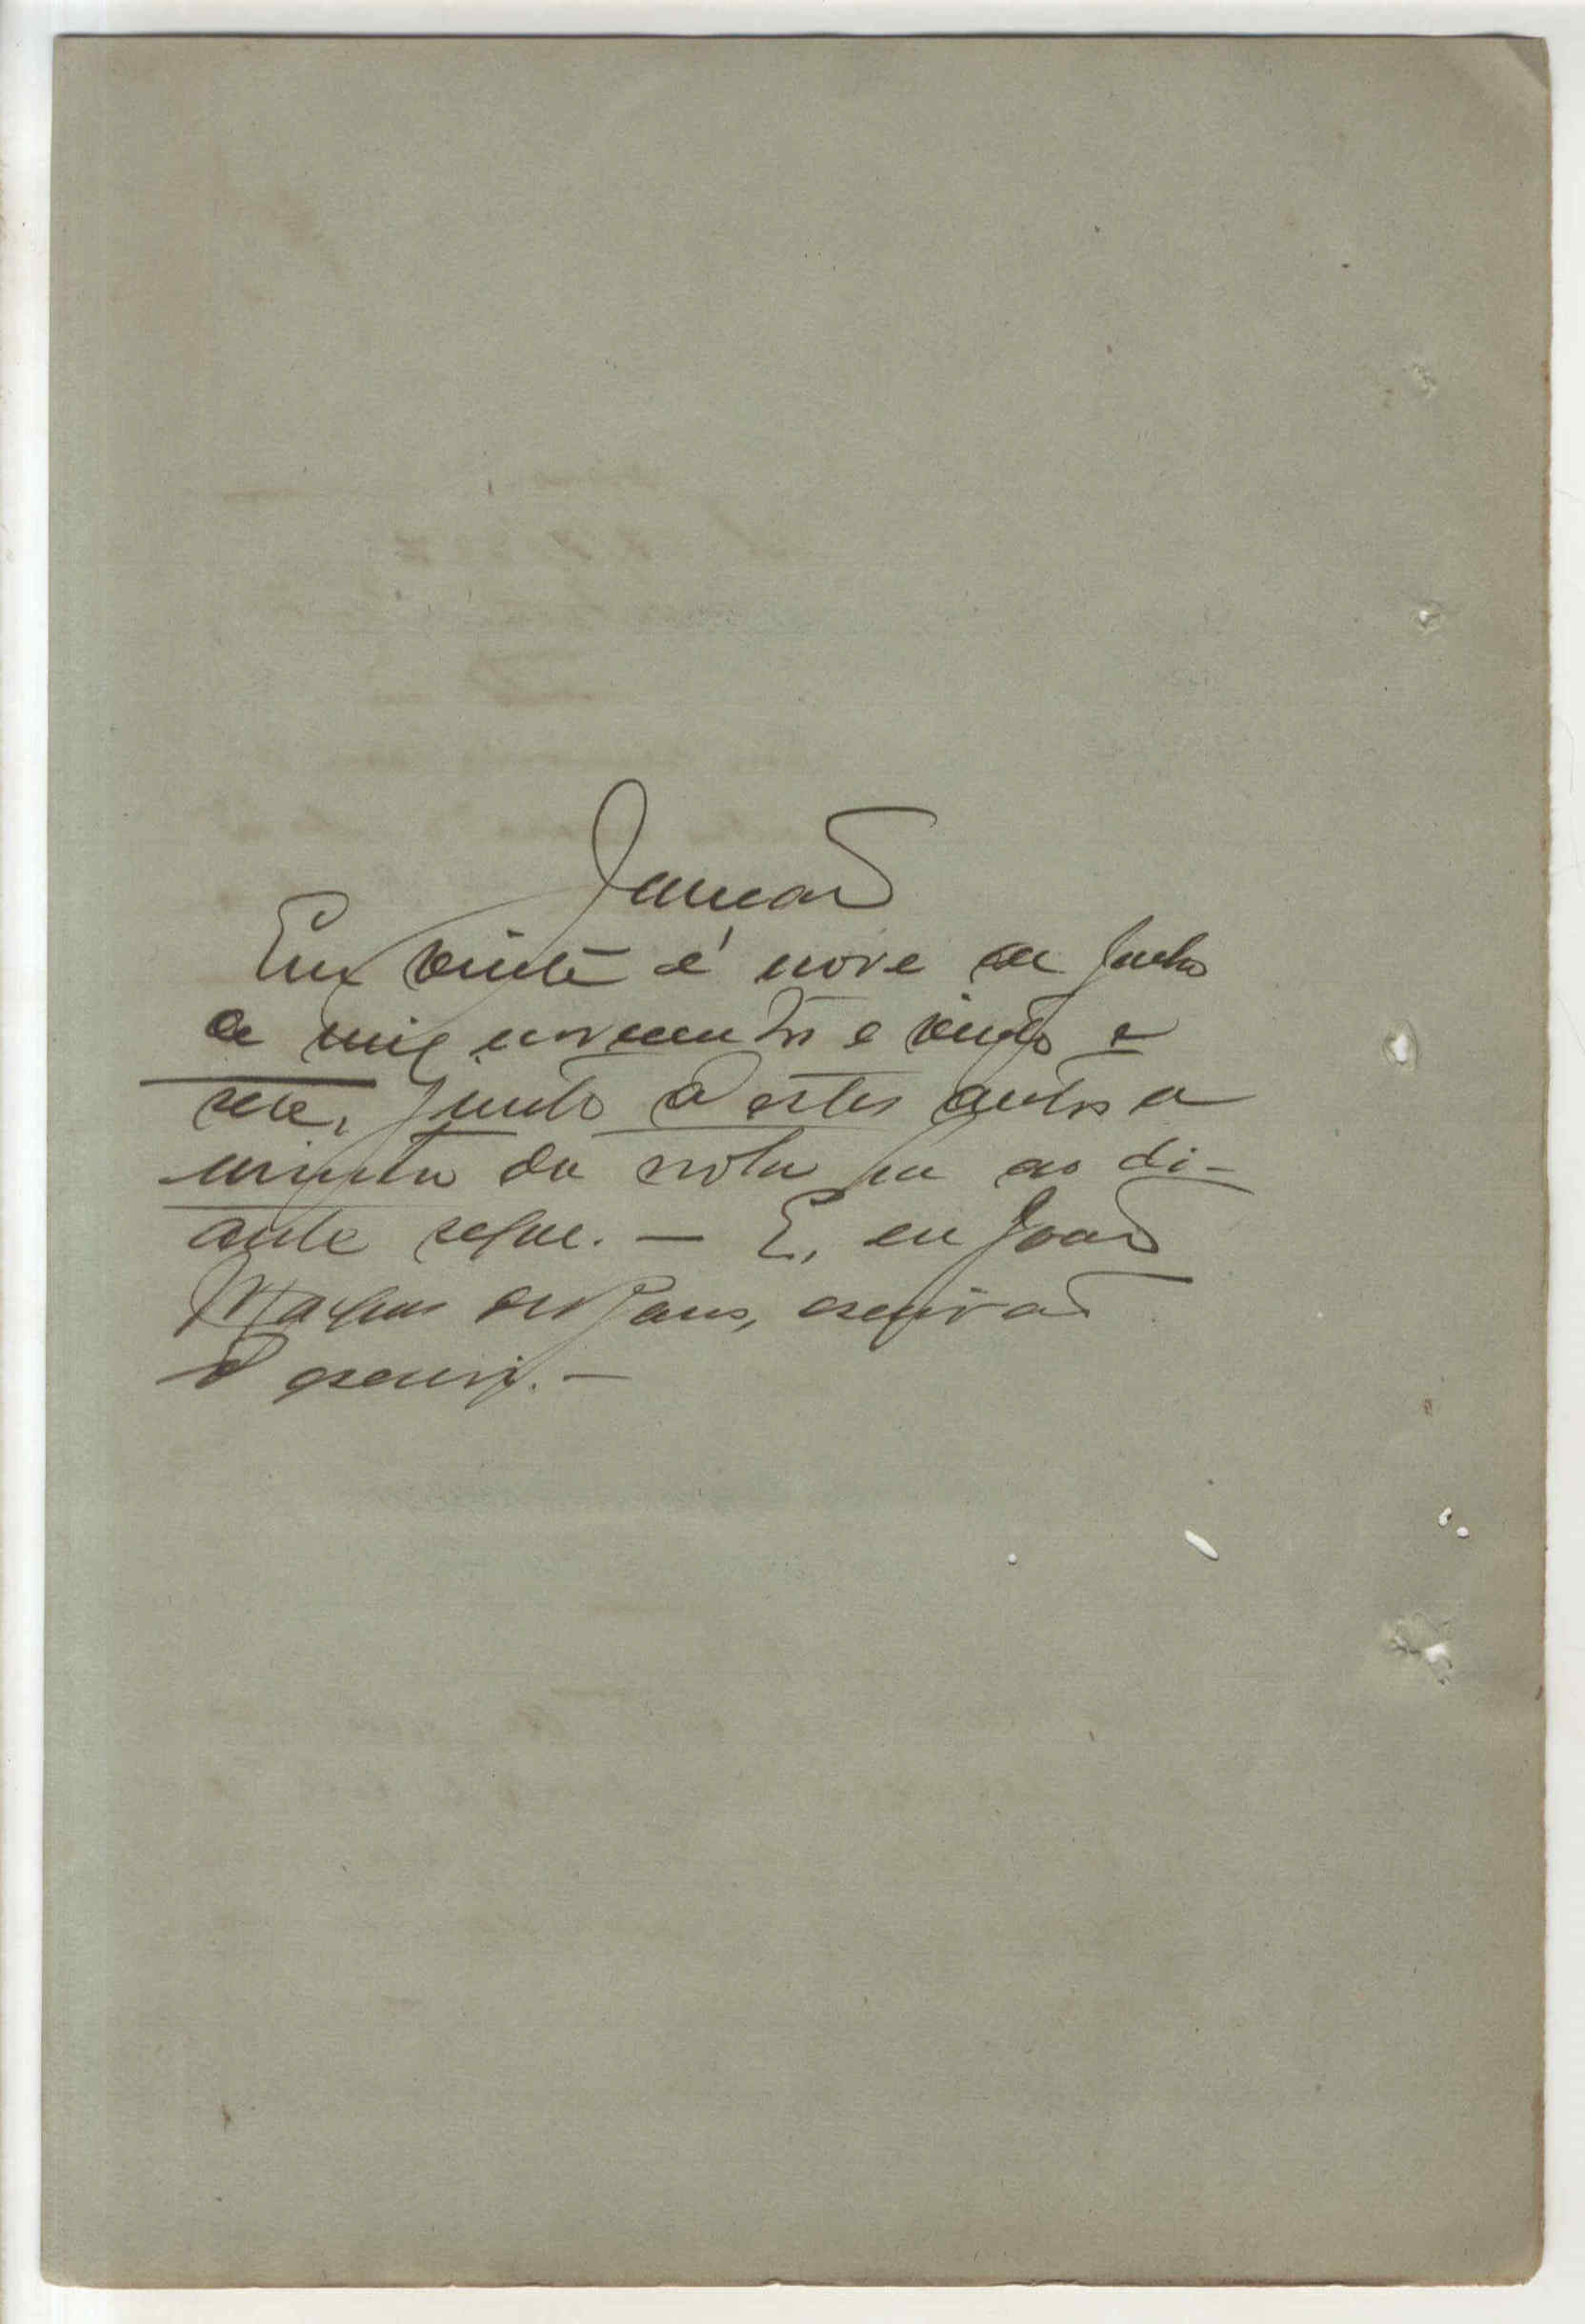 Juntada
Em vinte e nove de Junho
de mil novecentos e vinte e
sete, junto a estes autos a
minuta da nota que ao di-
ante segue. — E, eu João
Marques dos Passos, escrivão
o escrevi. —